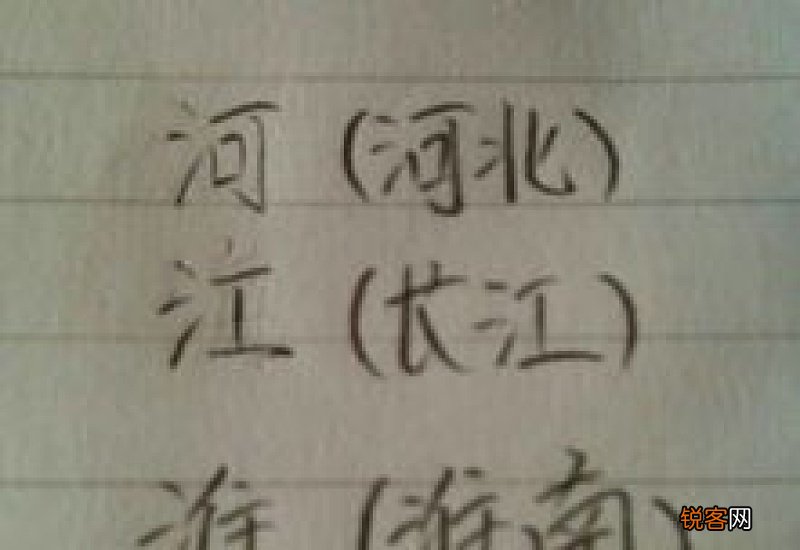 河（河北）
江（长江）
淮（淮南）
锐客网